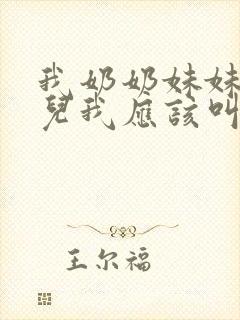 我奶奶妹妹
兒我应该叫
王尔福